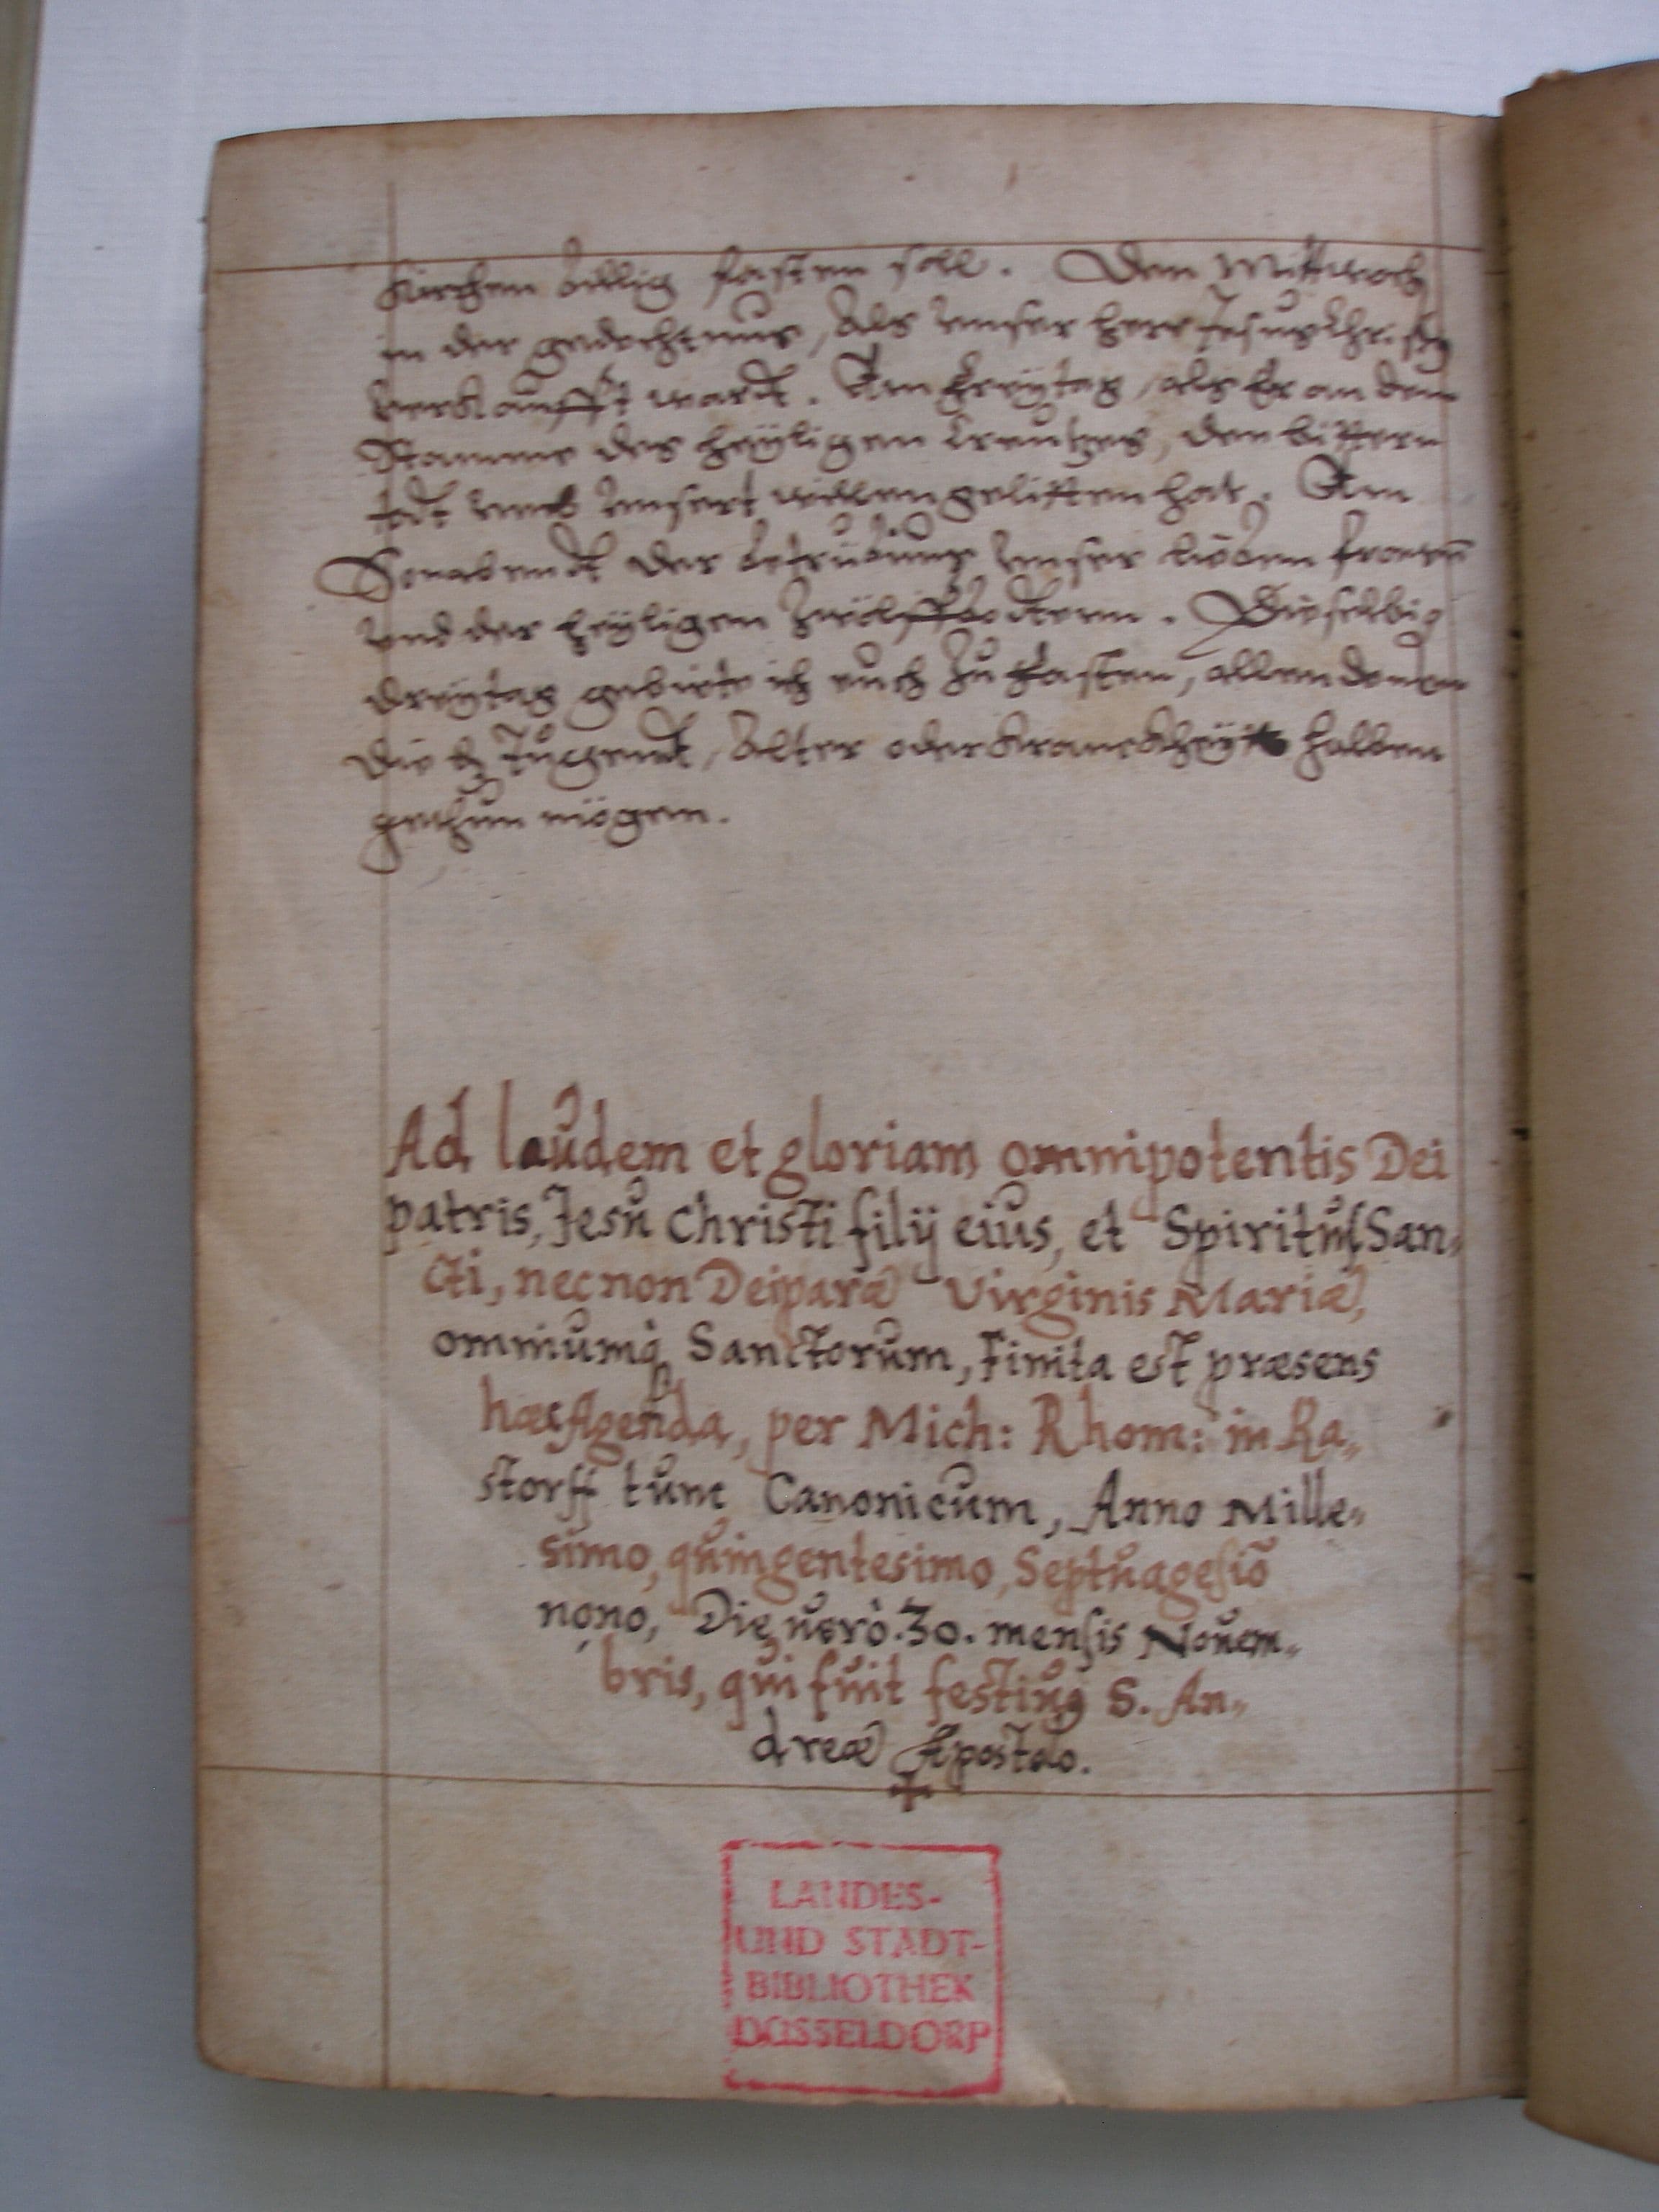 Kirchen billig fasten soll. Den Mittwoch
in der gedechtnus, Als unser herr Jesus Chri
verkaufft wardt. Am Freytag, als Er an dem
Stamme des heyligen Creutzes, den bittern
todt umb unsert willen gelitten hat. Am
Sonabendt der betrübnus unser lieben frawen
und der heyligen Zwölffbodtenn. Dieselbig
dreytag gebiete ich euch Zu Fasten, allen denen
die es Jugendt, Alter oder Kranckheyt halben
gethun mögen.
Ad laudem et gloriam omnipotentis Dei
patris, Jesu Christi filij eius, et Spiritus San„
cti, necnon Deiparæ Virginis Mariæ,
omniumq; Sanctorum, Finita est præsens
hæc Agenda, per Mich: Rhom: in Ra„
storff tunc Canonicum, Anno Mille„
simo, quingentesimo, Septuagesiō
nono, Die verò .30. mensis Nouem„
bris, qui fuit festiuus S. An„
dreæ Apostolo.
LANDES-
UND STADT-
BIBLIOTHEK
DÜSSELDORF